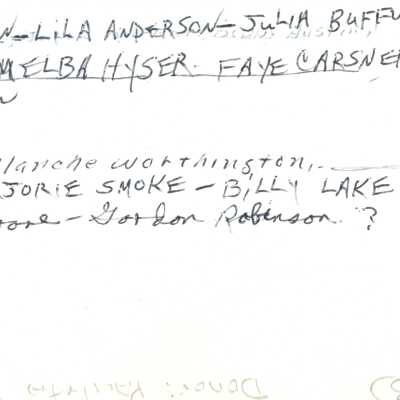 N-LILA ANDERSON-JULIA BUFFU
MELBA HYSER. FAYE CARSNE
lanche Worthington,
JORIE SMOKE - BILLY LAKE
oore - Gordon Robinson ?